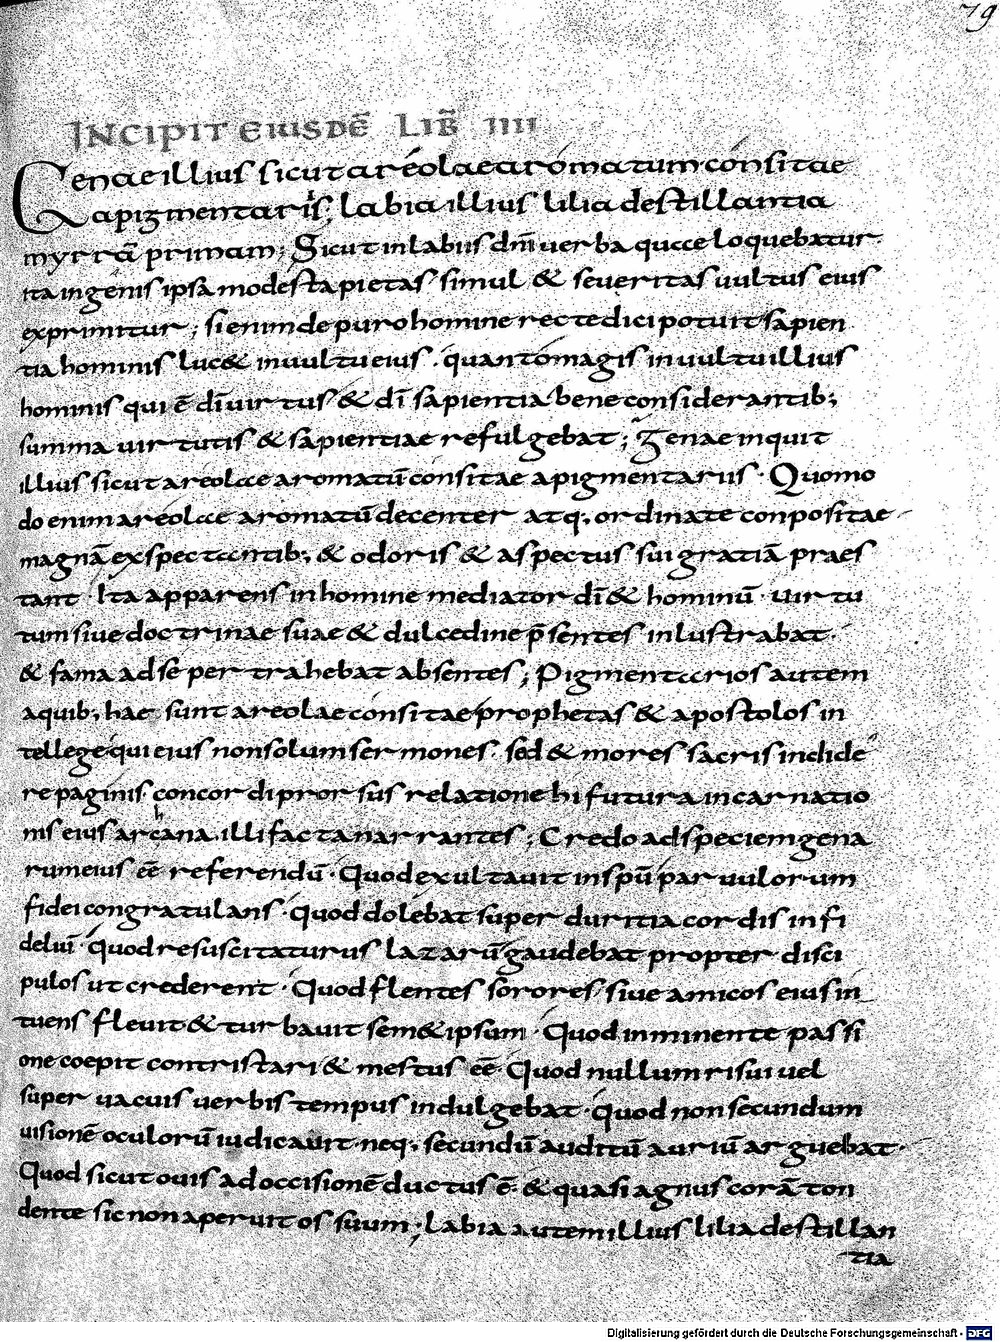 79
INCIPIT EIUSDĒ LIB̄ IIII
Genae illius sicut areolae aromatum consitae
a pigmentariis; labia illius lilia destillantia
myrrā primam; Sicut in labiis dn̄i verba quae loquebatur
ita in genis ipsa modesta pietas simul & severitas vultus eius
exprimitur; si enim de puro homine recte dici potuit sapien
tia hominis lucet in vultu eius · quanto magis in vultu illius
hominis qui ē dī virtus & dī sapientia bene considerantib;
summa virtutis & sapientiae refulgebat; Genae inquit
illius sicut areolae aromatū consitae a pigmentariis · Quomo
do enim areolae aromatū decenter atq; ordinate conpositae
magnā exspectantib; & odoris & aspectus sui gratiā praes
tant · Ita apparens in homine mediator dī & hominū · virtu
tum sive doctrinae suae & dulcedine p̄sentes inlustrabat ·
& fama ad se pertrahebat absentes; Pigmentarios autem
a quib; hae sunt areolae consitae prophetas & apostolos in
tellege qui eius non solum sermones · sed & mores sacris indide
re paginis concordi prorsus relatione hi futura incarnatio
nis eius archana · illi facta narrantes; Credo ad speciem gena
rum eius eē referendū · Quod exultavit in spū parvulorum
fidei congratulans · quod dolebat super duritia cordis infi
deliū · quod resuscitaturus lazarū gaudebat propter disci
pulos ut crederent · Quod flentes sorores sive amicos eius in
tuens flevit & turbavit semetipsum · Quod inminente passi
one coepit contristari & mestus eē · Quod nullum risui vel
supervacuis verbis tempus indulgebat · quod non secundum
visionē oculorū iudicavit neq; secundū auditū auriū arguebat ·
Quod sicut ovis ad occisionē ductus ē · & quasi agnus corā ton
dente sic non aperuit os suum; labia autem illius lilia destillan
tia
Digitalisierung gefördert durch die Deutsche Forschungsgemeinschaft - DFG